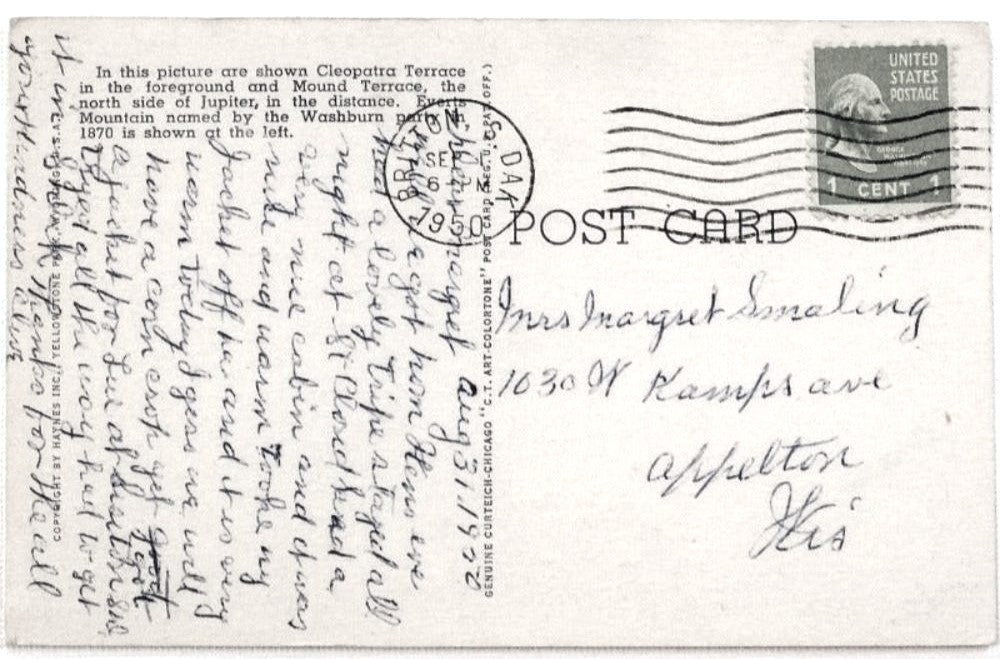 In this picture are shown Cleopatra Terrace
in the foreground and Mound Terrace, the
north side of Jupiter, in the distance. Everts
Mountain named by the Washburn party in
1870 is shown at the left.
COPYRIGHT BY HAYNES INC., YELLOWSTONE
GENUINE CURTEICH-CHICAGO "C. T. ART-COLORTONE" POST CARD (REG. U. S. PAT. OFF.)
S. DAK
SEP 1
6
1950
UNITED
STATES
POSTAGE
GEORGE
1 CENT 1
POST CARD
Mrs Margret Smaling
1030 W Kamps ave
Appelton
Wis
Aug 31 1950
Margret
got hom Hens eve
had a lovely Tripe stayed all
night at St Cloud had a
very nice cabin and it was
nice and warm Tooke my
Jacket off he and it is very
warm Today I gess we will
have a corn crop yet I got
a jacket for Lue at
all the way had to get
it in
Thanks for the all
your kindness